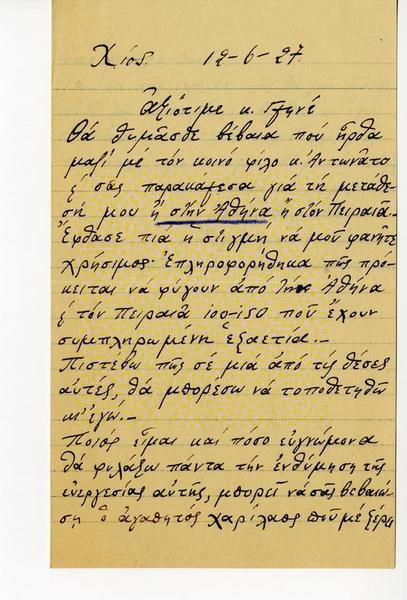 Χίος. 12-6-27.
Ἀξιότιμε κ. Γληνέ
Θά θυμᾶσθε βέβαια πού ἦρθα
μαζί μέ τόν κοινό φίλο κ. Ἀντωνᾶτο
ϗ σᾶς παρακάλεσα γιά τή μετάθε
σή μου ἤ στήν Ἀθήνα ἤ στόν Πειραιᾶ.
Ἔφθασε πιά ἡ στιγμή νά μοῦ φανῆτε
χρήσιμος. Ἐπληροφορήθηκα πῶς πρό-
κειται νά φύγουν ἀπό τήν Ἀθήνα
ϗ τόν Πειραιᾶ 100-150 πού ἔχουν
συμπληρωμένη ἑξαετία.-
Πιστεύω πῶς σέ μιά ἀπό τίς θέσες
αὐτές, θά μπορέσω νά τοποθετηθῶ
κι' ἐγώ.-
Ποιός εἶμαι καί πόσο εὐγνώμονα
θά φυλάξω πάντα τήν ἐνθύμηση τῆς
εὐεργεσίας αὐτῆς, μπορεῖ νά σᾶς βεβαιώ
ση ὁ ἀγαθητός Χαρίλαος πού μέ ξέρει